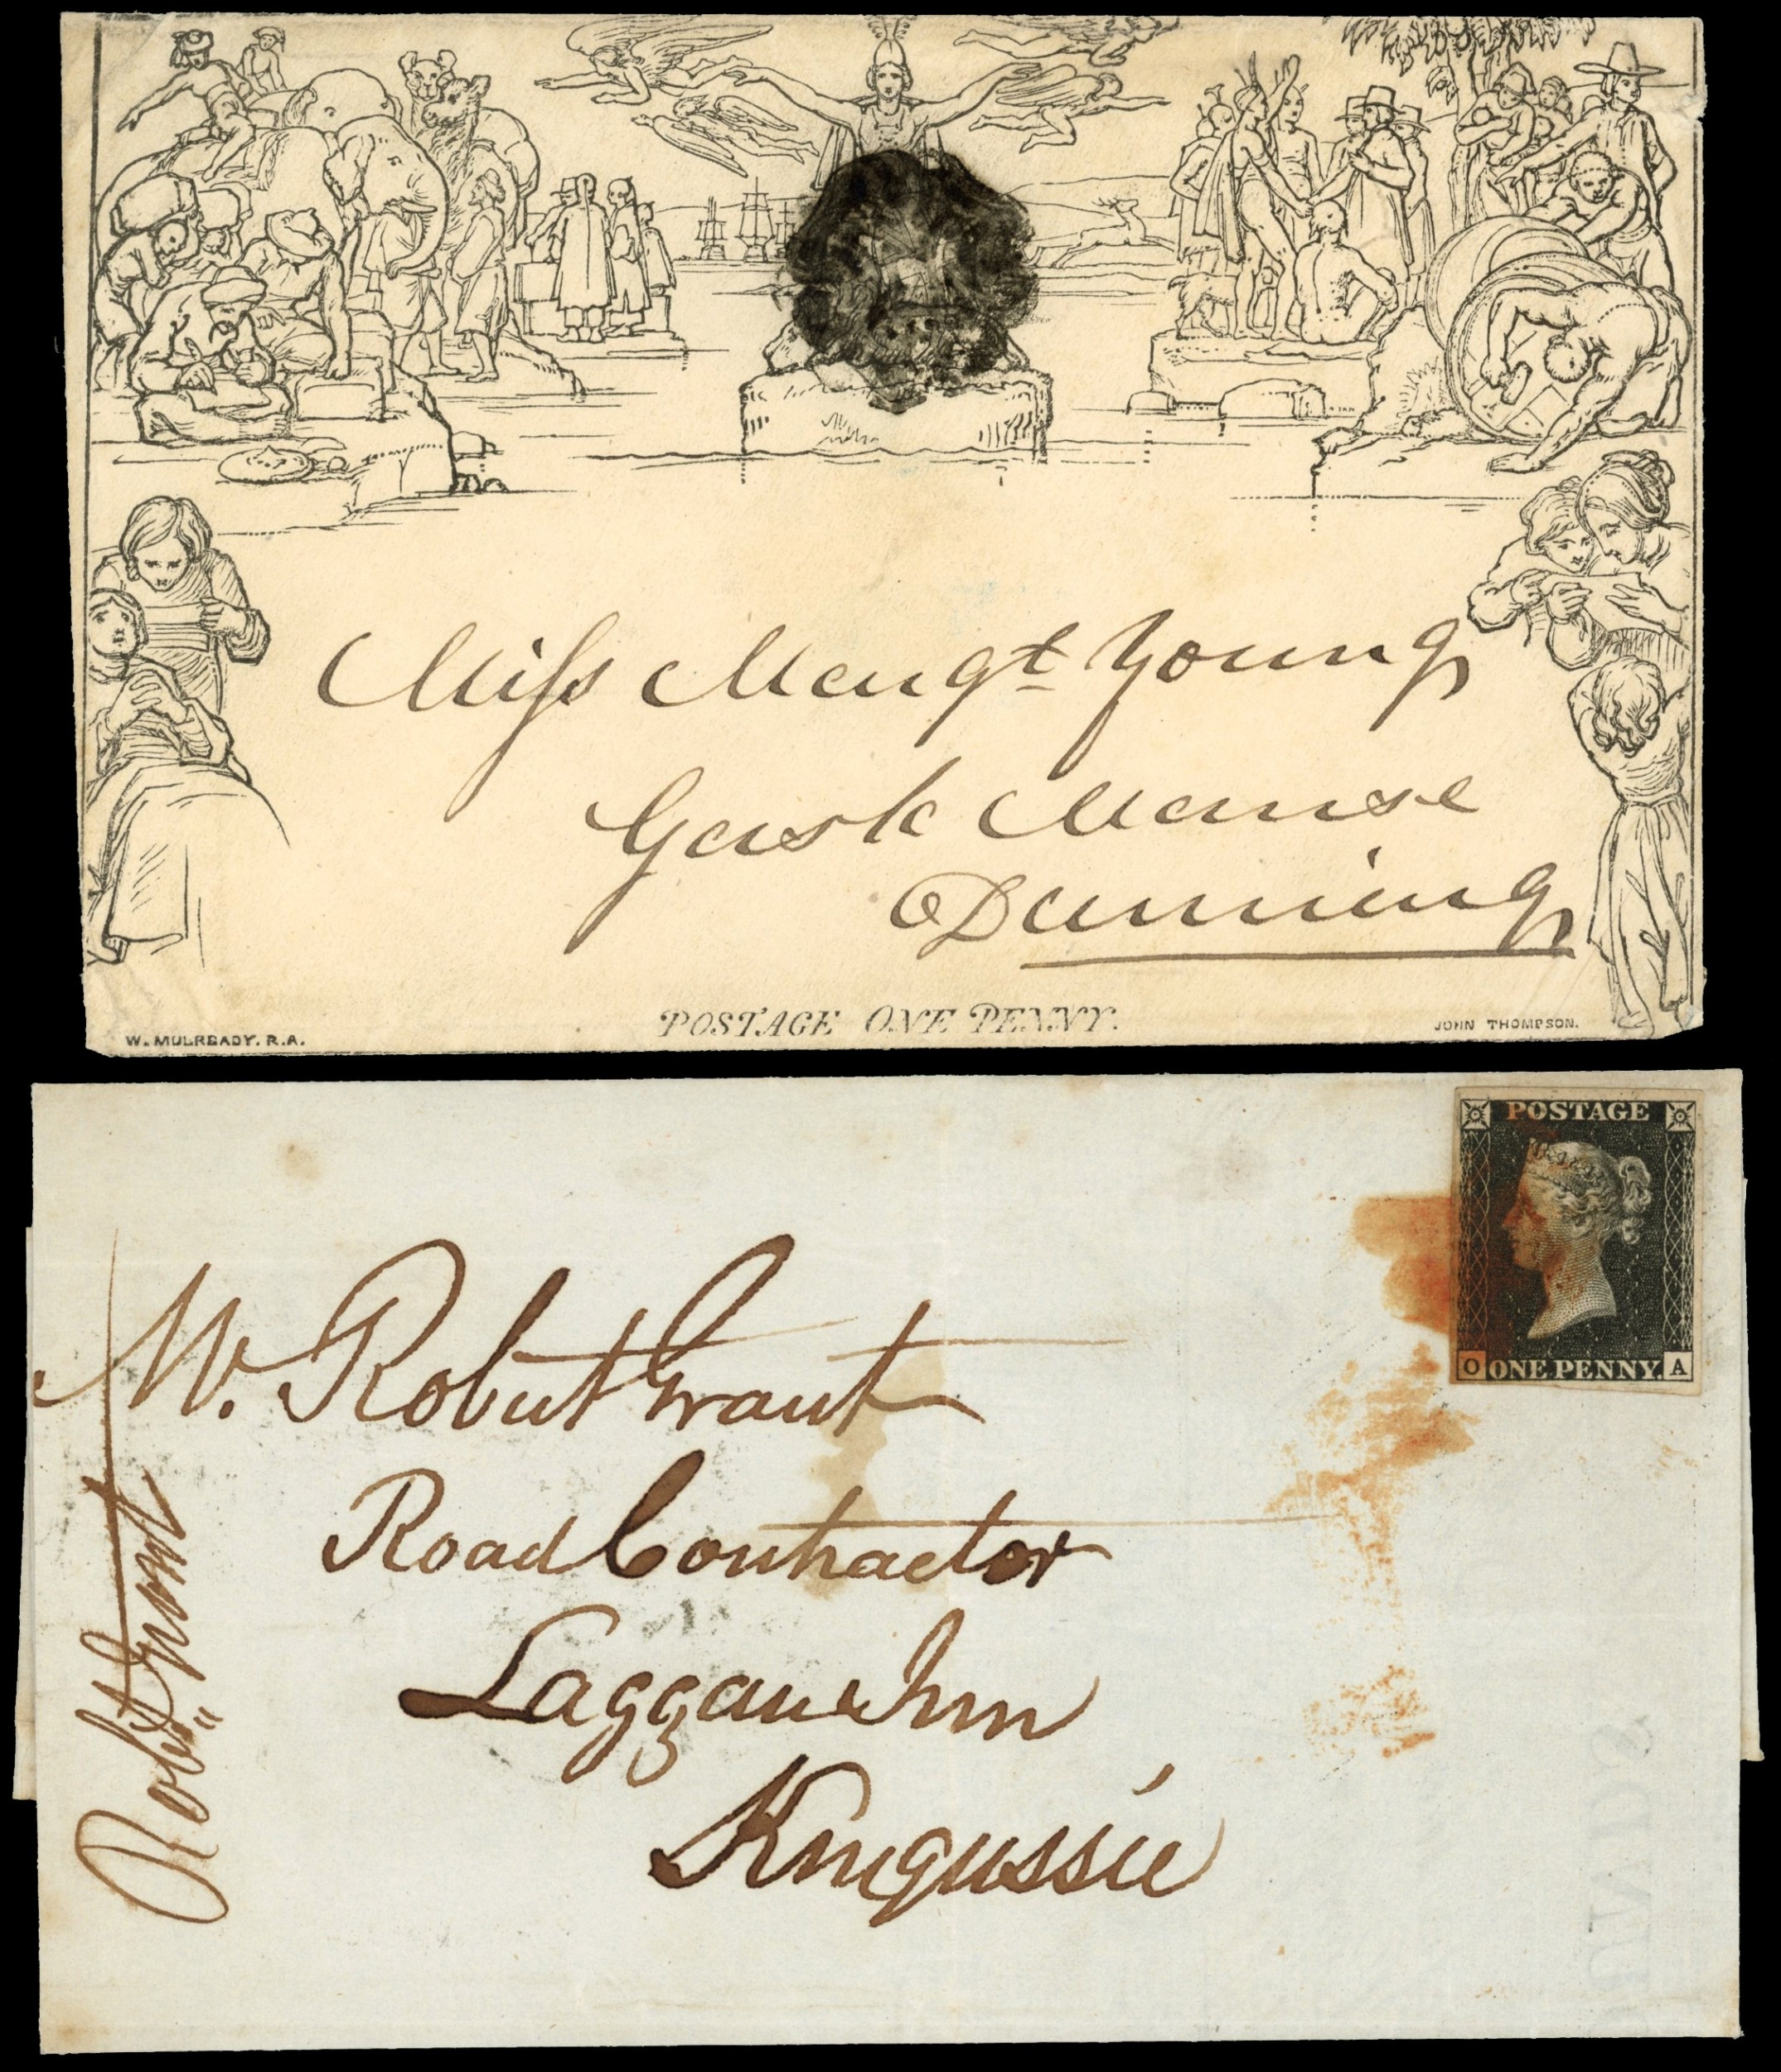 Miss Margt Young
Gask Manse
Dunning
POSTAGE ONE PENNY.
W. MULREADY. R.A.
JOHN THOMPSON.
POSTAGE
O ONE PENNY. A
Mr. Robert Grant
Road Contractor
Laggan Inn
Kingussie
Robt Grant